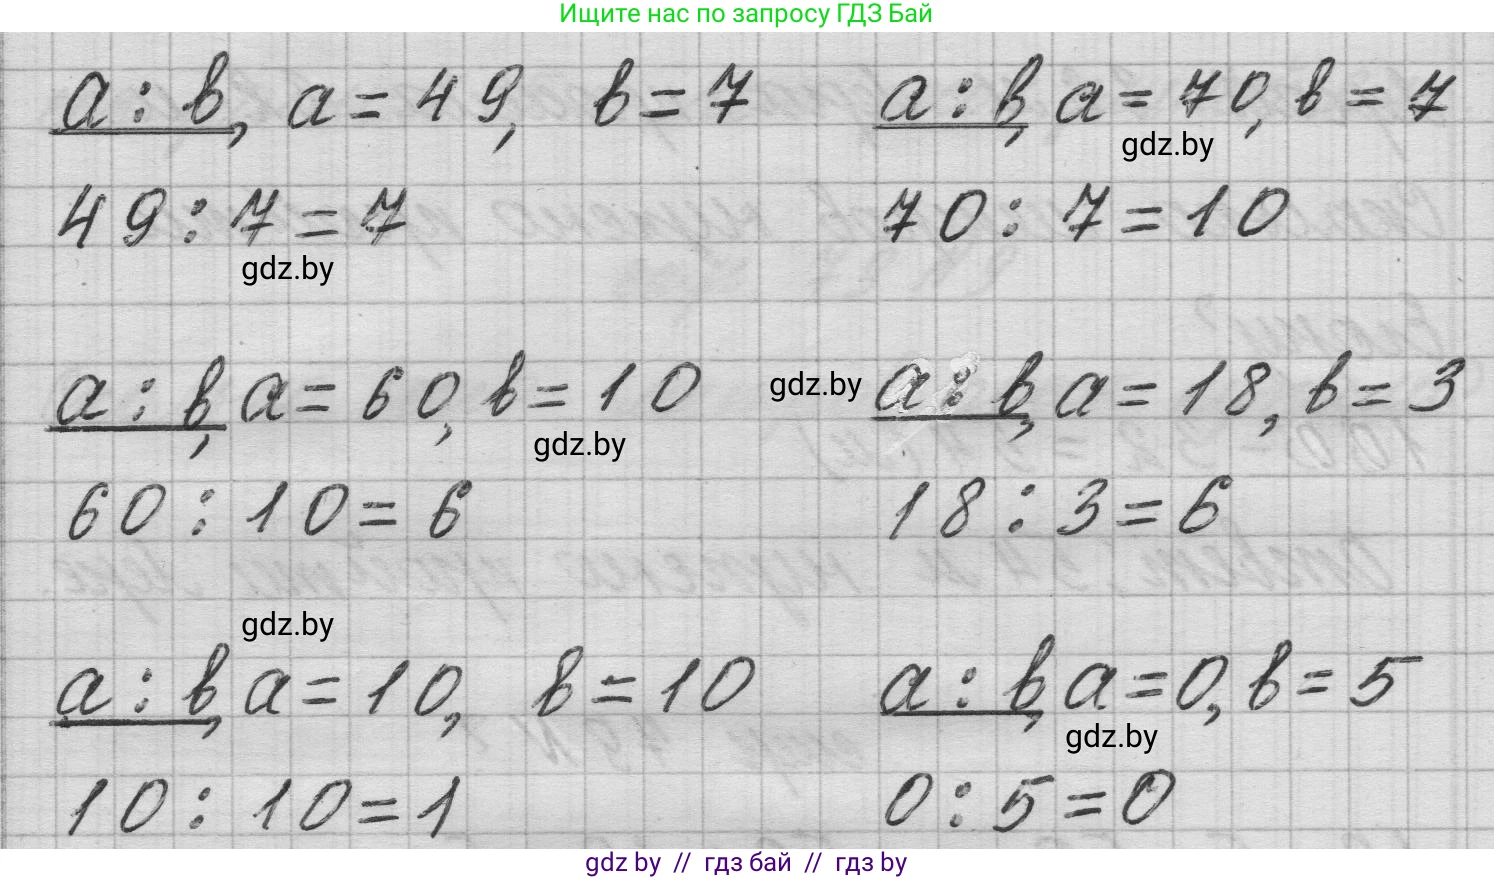 Ищите нас по запросу ГДЗ Бай
а : в, а = 49, в = 7
а : в, а = 70, в = 7
gdz.by
49 : 7 = 7
70 : 7 = 10
gdz.by
а : в, а = 60, в = 10
gdz.by
а : в, а = 18, в = 3
gdz.by
60 : 10 = 6
18 : 3 = 6
gdz.by
а : в, а = 10, в = 10
а : в, а = 0, в = 5
gdz.by
10 : 10 = 1
0 : 5 = 0
gdz by // гдз бай // гдз by